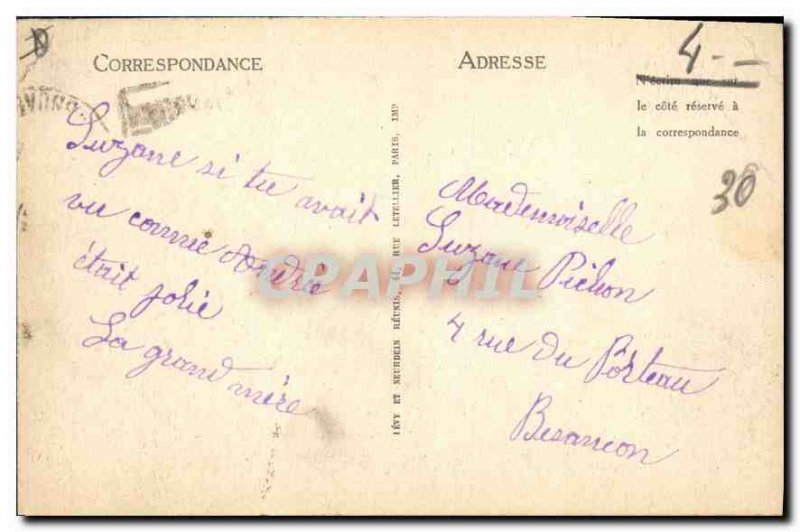 CORRESPONDANCE
Suzane si tu avait
vu comme Andrée
était jolie
La grand mère
LÉVY ET NEURDEIN RÉUNIS, 44, RUE LETELLIER, PARIS, IMP
ADRESSE
4 --
N'écrire que sur
le côté réservé à
la correspondance
30
Mademoiselle
Suzan Pichon
4 rue du Porteau
Besancon
CPARPHIL